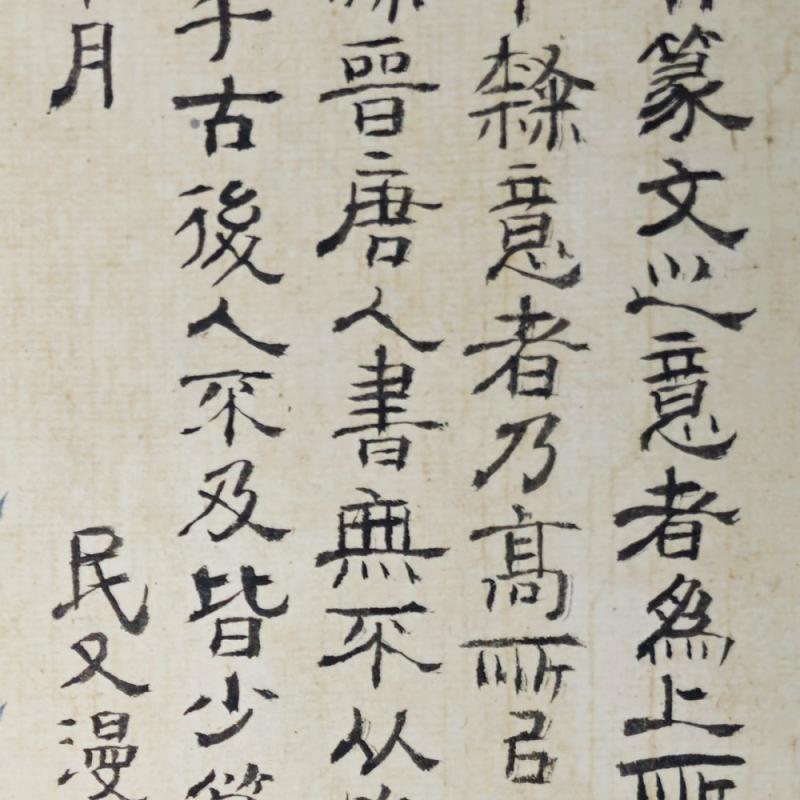 篆文之意者爲上所
隸意者乃高所㠯
晉唐人書無不从
古後人不及皆少
月 民又漫